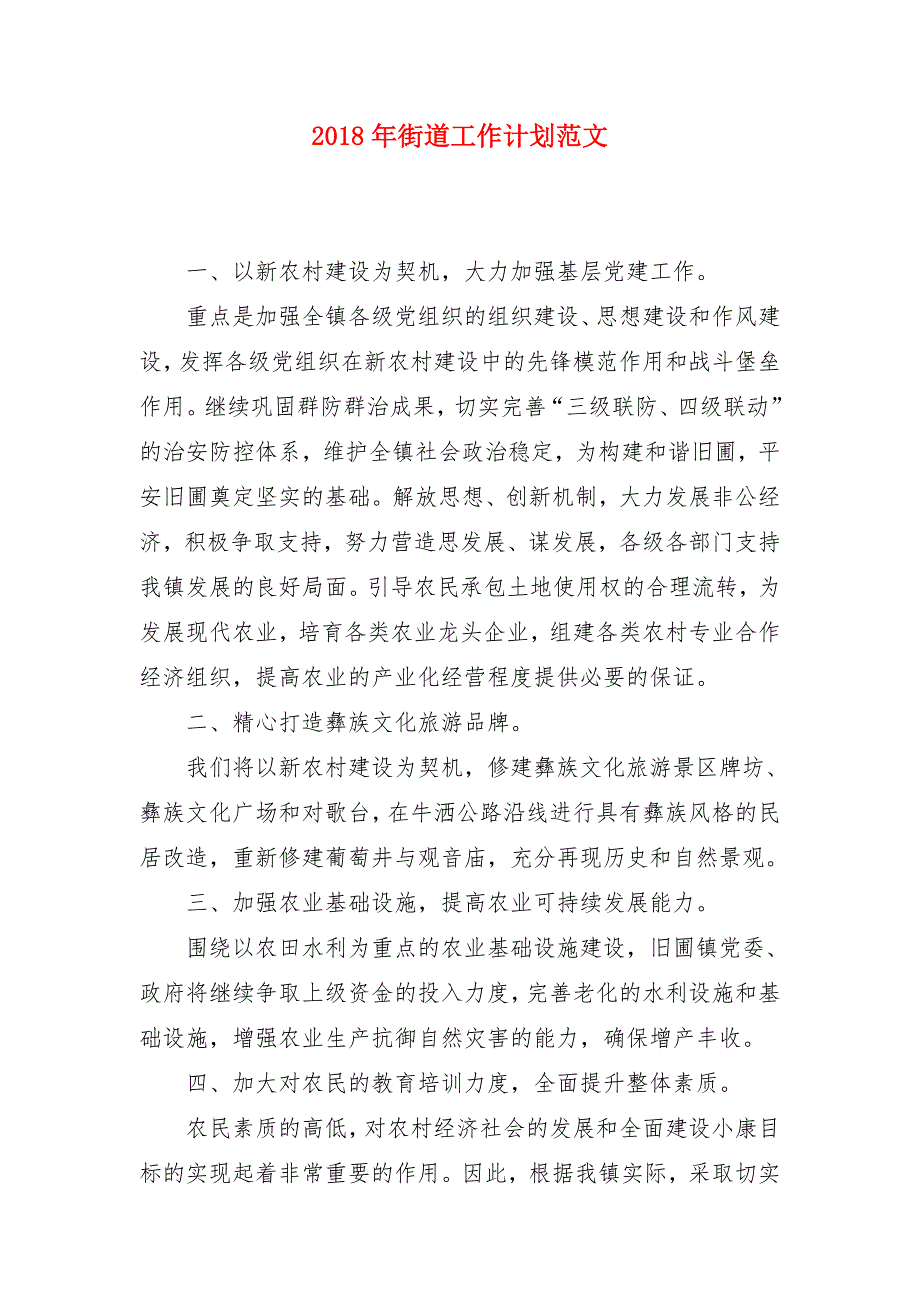 2018 年街道工作计划范文
一、以新农村建设为契机，大力加强基层党建工作。
重点是加强全镇各级党组织的组织建设、思想建设和作风建
设，发挥各级党组织在新农村建设中的先锋模范作用和战斗堡垒
作用。继续巩固群防群治成果，切实完善“三级联防、四级联动”
的治安防控体系，维护全镇社会政治稳定，为构建和谐旧圃，平
安旧圃奠定坚实的基础。解放思想、创新机制，大力发展非公经
济，积极争取支持，努力营造思发展、谋发展，各级各部门支持
我镇发展的良好局面。引导农民承包土地使用权的合理流转，为
发展现代农业，培育各类农业龙头企业，组建各类农村专业合作
经济组织，提高农业的产业化经营程度提供必要的保证。
二、精心打造彝族文化旅游品牌。
我们将以新农村建设为契机，修建彝族文化旅游景区牌坊、
彝族文化广场和对歌台，在牛洒公路沿线进行具有彝族风格的民
居改造，重新修建葡萄井与观音庙，充分再现历史和自然景观。
三、加强农业基础设施，提高农业可持续发展能力。
围绕以农田水利为重点的农业基础设施建设，旧圃镇党委、
政府将继续争取上级资金的投入力度，完善老化的水利设施和基
础设施，增强农业生产抗御自然灾害的能力，确保增产丰收。
四、加大对农民的教育培训力度，全面提升整体素质。
农民素质的高低，对农村经济社会的发展和全面建设小康目
标的实现起着非常重要的作用。因此，根据我镇实际，采取切实